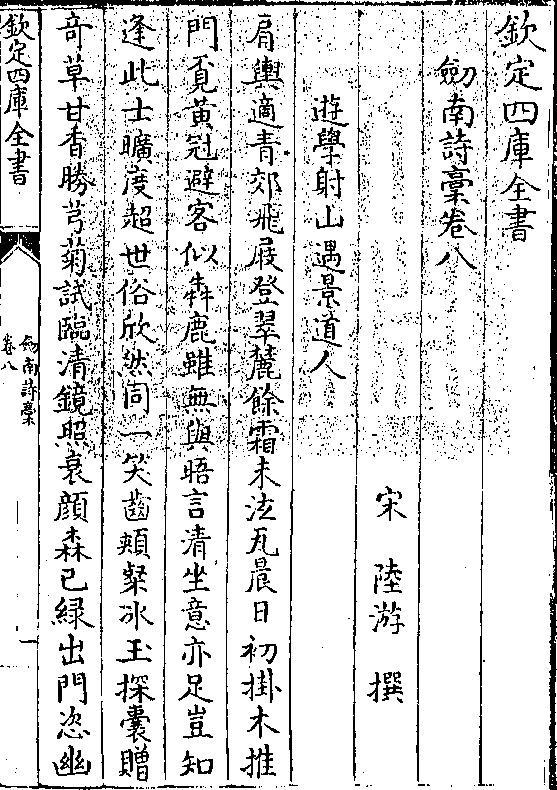 欽定四庫全書
劒南詩稾卷八
宋 陸游 撰
遊學射山遇景道人
肩輿適青郊飛屐登翠麓餘霜未泫瓦晨日初掛木推
門覔黄冠避客似犇鹿雖無與晤言清坐意亦足豈知
逢此士曠度超世俗欣然同一笑齒頰粲冰玉探囊贈
竒草甘香勝芎菊試臨清鏡照衰顔森已緑出門恣幽
欽定四庫全書
劒南詩稾
卷八
一